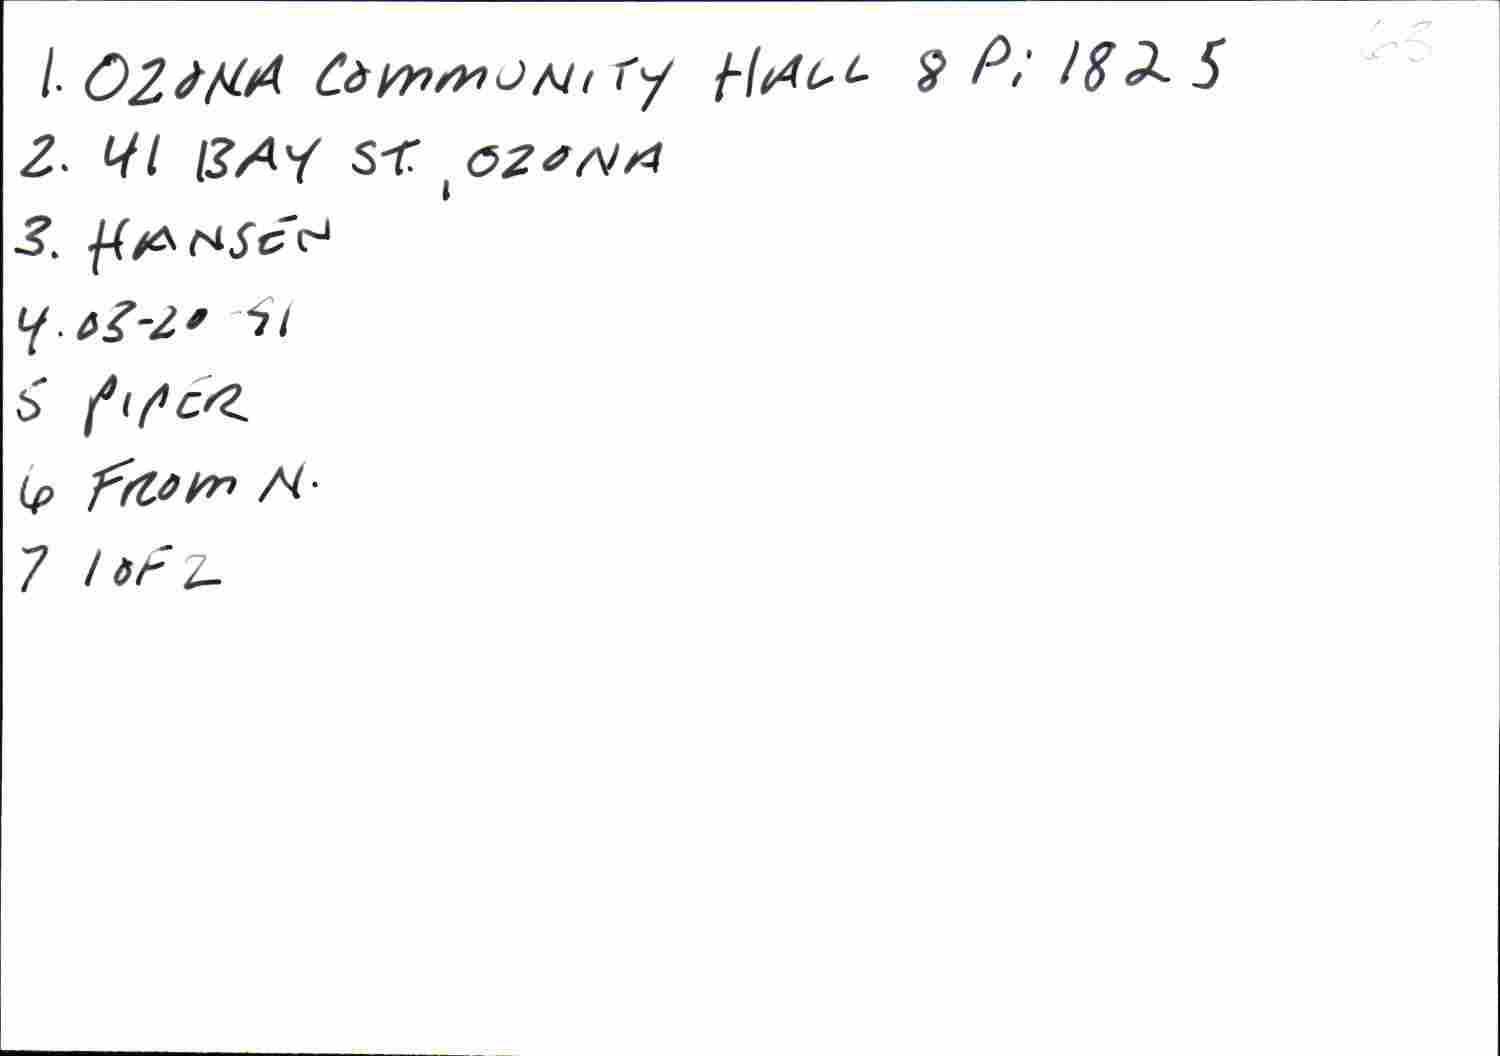 1. OZONA COMMUNITY HALL 8 Pi 1825
63
2. 41 BAY ST., OZONA
3. HANSEN
4. 03-20-91
5 PIPER
6 FROM N.
7 1 OF 2